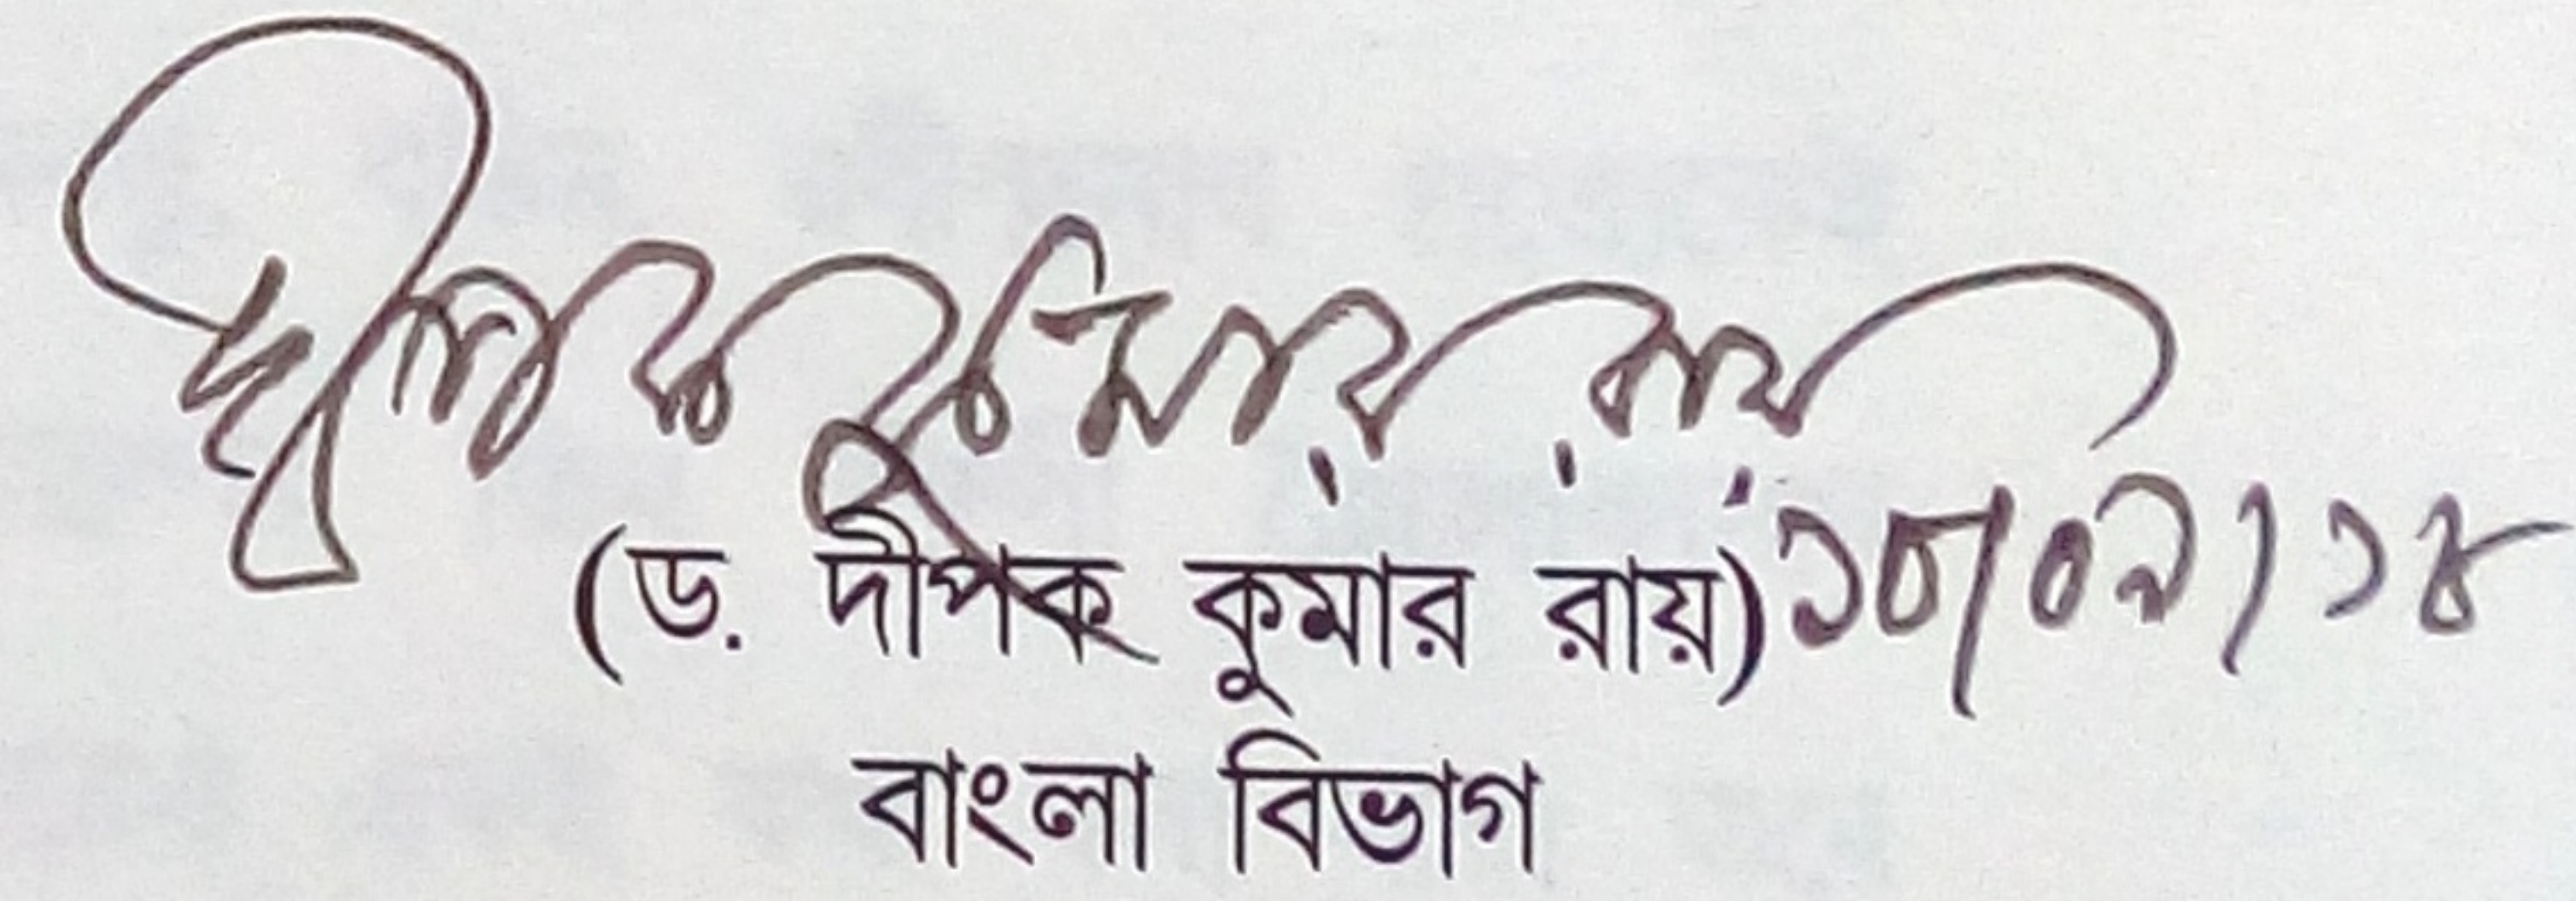 দীপক কুমার রায়
(ড. দীপক কুমার রায়) ১৮/০৯/১৪
বাংলা বিভাগ